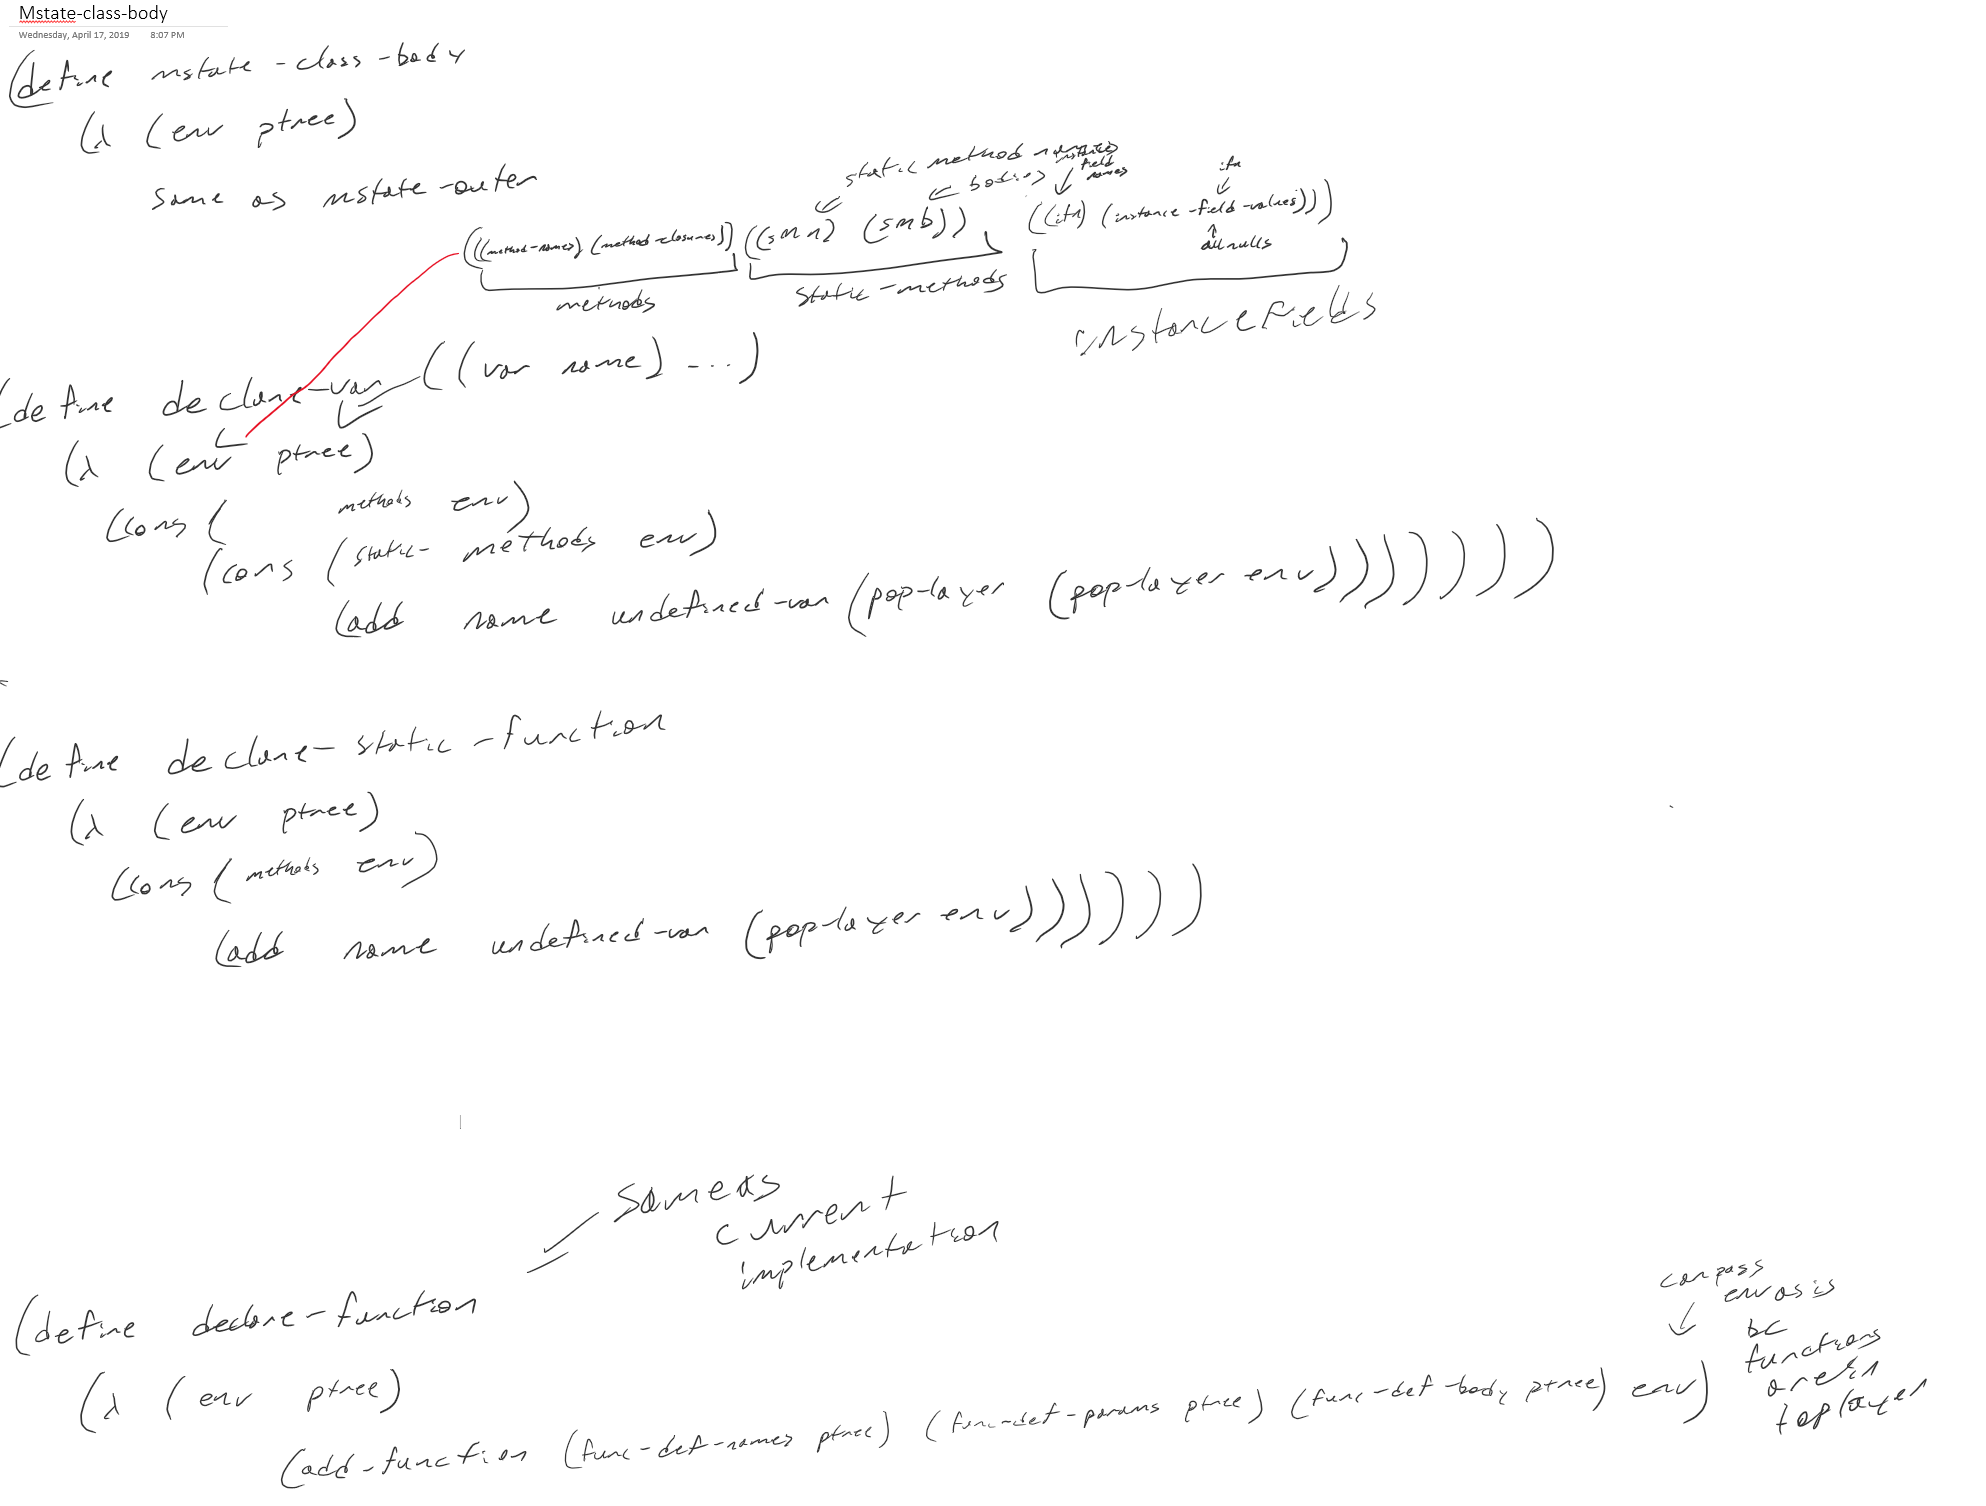 Mstate-class-body
Wednesday, April 17, 2019 8:07 PM
(define mstate-class-body
(λ (env ptree)
same as mstate-outer
static method names
bodies
instance
field
names
ifn
(((method-names) (method-closures)) ((smn) (smb)) ((ifn) (instance-field-values)))
all nulls
methods
static-methods
instance fields
((var name) ...)
(define declare-var
(λ (env ptree)
(cons ( methods env)
(cons (static-methods env)
(add name undefined-var (pop-layer (pop-layer env))))))))
(define declare-static-function
(λ (env ptree)
(cons (methods env)
(add name undefined-var (pop-layer env))))))
same as
current
implementation
(define declare-function
(λ (env ptree)
(add-function (func-def-names ptree) (func-def-params ptree) (func-def-body ptree) env)
can pass
env as is
bc
functions
are in
top layer